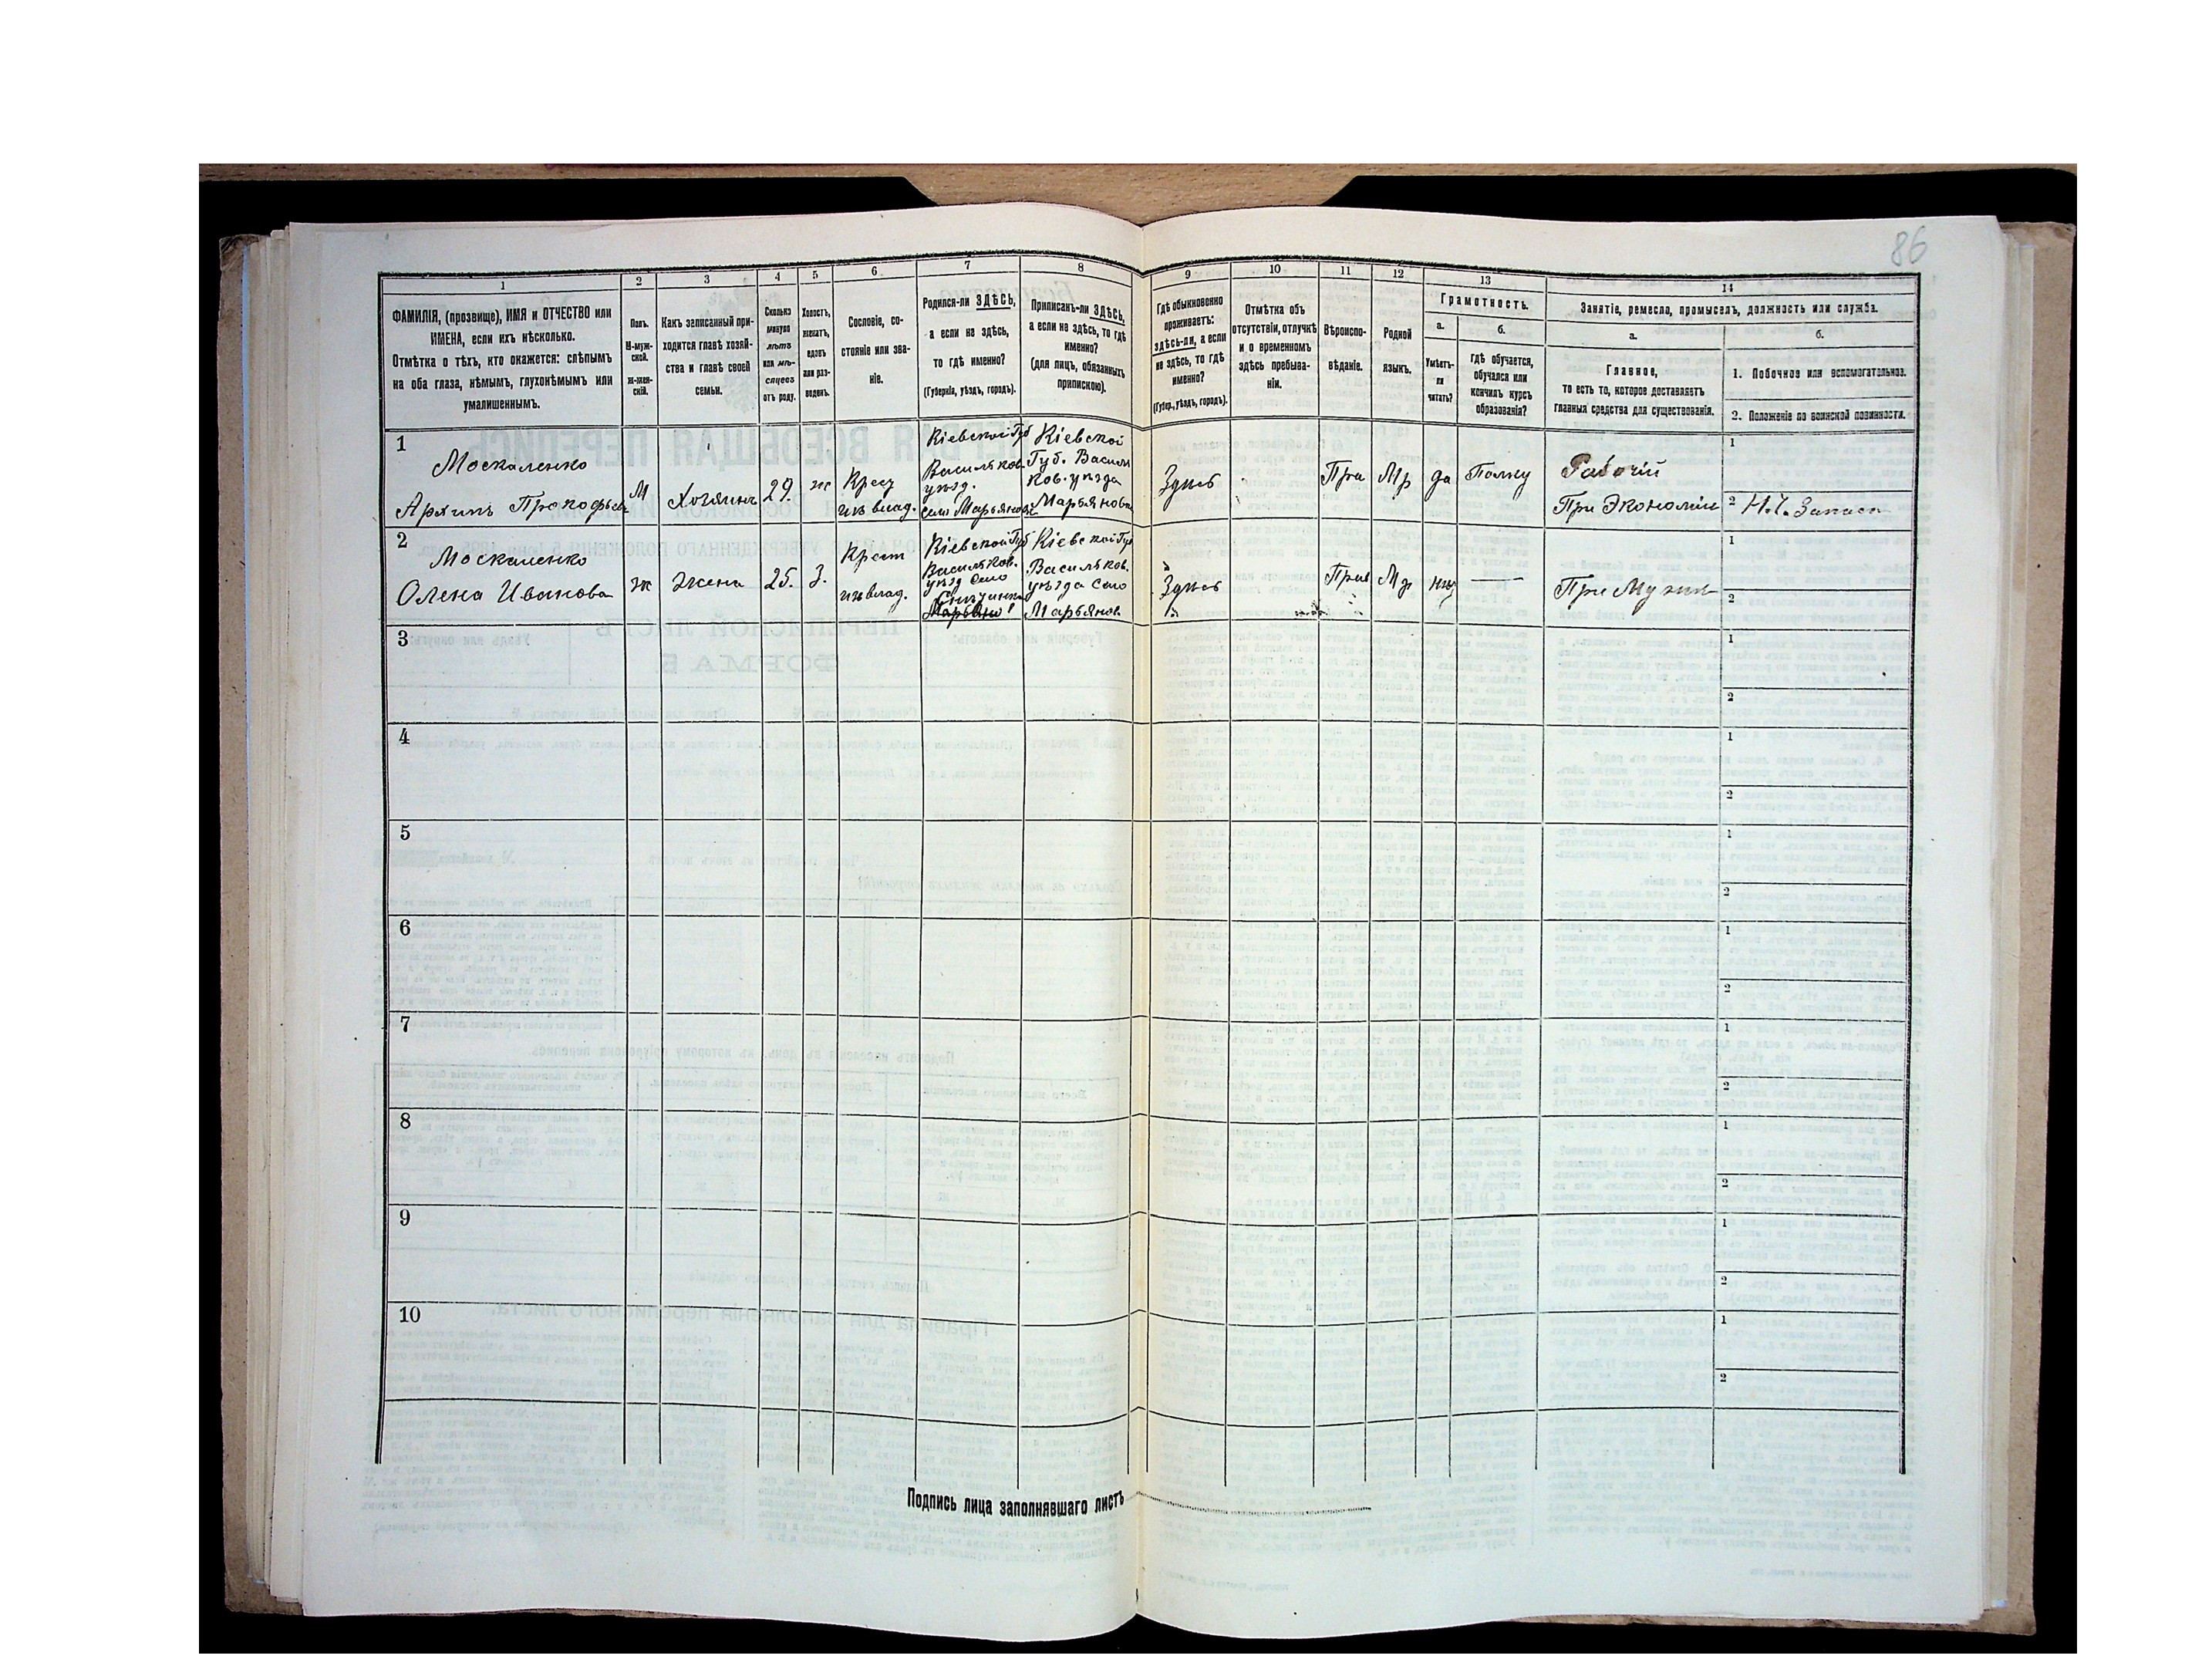 86
1
2
3
4
5
6
7
8
9
10
11
12
13
14
ФАМИЛІЯ, (прозвище), ИМЯ и ОТЧЕСТВО или
ИМЕНА, если ихъ нѣсколько.
Отмѣтка о тѣхъ, кто окажется: слѣпымъ
на оба глаза, нѣмымъ, глухонѣмымъ или
умалишеннымъ.
Полъ.
М-муж-
ской.
ж-жен-
скій.
Какъ записанный при-
ходится главѣ хозяй-
ства и главѣ своей
семьи.
Сколько
минуло
лѣтъ
или мѣ-
сяцевъ
отъ роду.
Холостъ,
женатъ,
вдовъ
или раз-
веденъ.
Сословіе, со-
стояніе или зва-
ніе.
Родился-ли ЗДѢСЬ,
а если не здѣсь,
то гдѣ именно?
(Губернія, уѣздъ, городъ).
Приписанъ-ли ЗДѢСЬ,
а если не здѣсь, то гдѣ
именно?
(для лицъ, обязанныхъ
припискою).
Гдѣ обыкновенно
проживаетъ:
здѣсь-ли, а если
не здѣсь, то гдѣ
именно?
(Губер., уѣздъ, городъ).
Отмѣтка объ
отсутствіи, отлучкѣ
и о временномъ
здѣсь пребыва-
ніи.
Вѣроиспо-
вѣданіе.
Родной
языкъ.
Грамотность.
а.
Умѣетъ-
ли
читать?
б.
гдѣ обучается,
обучался или
кончилъ курсъ
образованія?
Занятіе, ремесло, промыселъ, должность или служба.
а.
Главное,
то есть то, которое доставляетъ
главныя средства для существованія.
б.
1. Побочное или вспомогательное.
2. Положеніе по воинской повинности.
1
Москаленко
Архипъ Прокофьев
М
Хозяинъ
29.
ж
Крест
изъ влад.
Кіевской Губ
Васильков.
уѣзд.
село Марьяновк
Кіевской
Губ. Василь
ков. уѣзда
Марьяновк
Здѣсь
Пра
Мр
да
Полку
Рабочій
При Экономіи
1
2 Н.Ч. Запаса
2
Москаленко
Олена Иванова
ж
Жена
25.
З.
Крест
изъ влад.
Кіевской Губ
Васильков.
уѣзд Село
Кіевской Губ
Васильков.
уѣзда Село
Марьянов.
Здѣсь
Прав
Мр
нѣт
При Мужѣ
1
2
3
1
2
4
1
2
5
1
2
6
1
2
7
1
2
8
1
2
9
1
2
10
1
2
Подпись лица заполнявшаго листъ